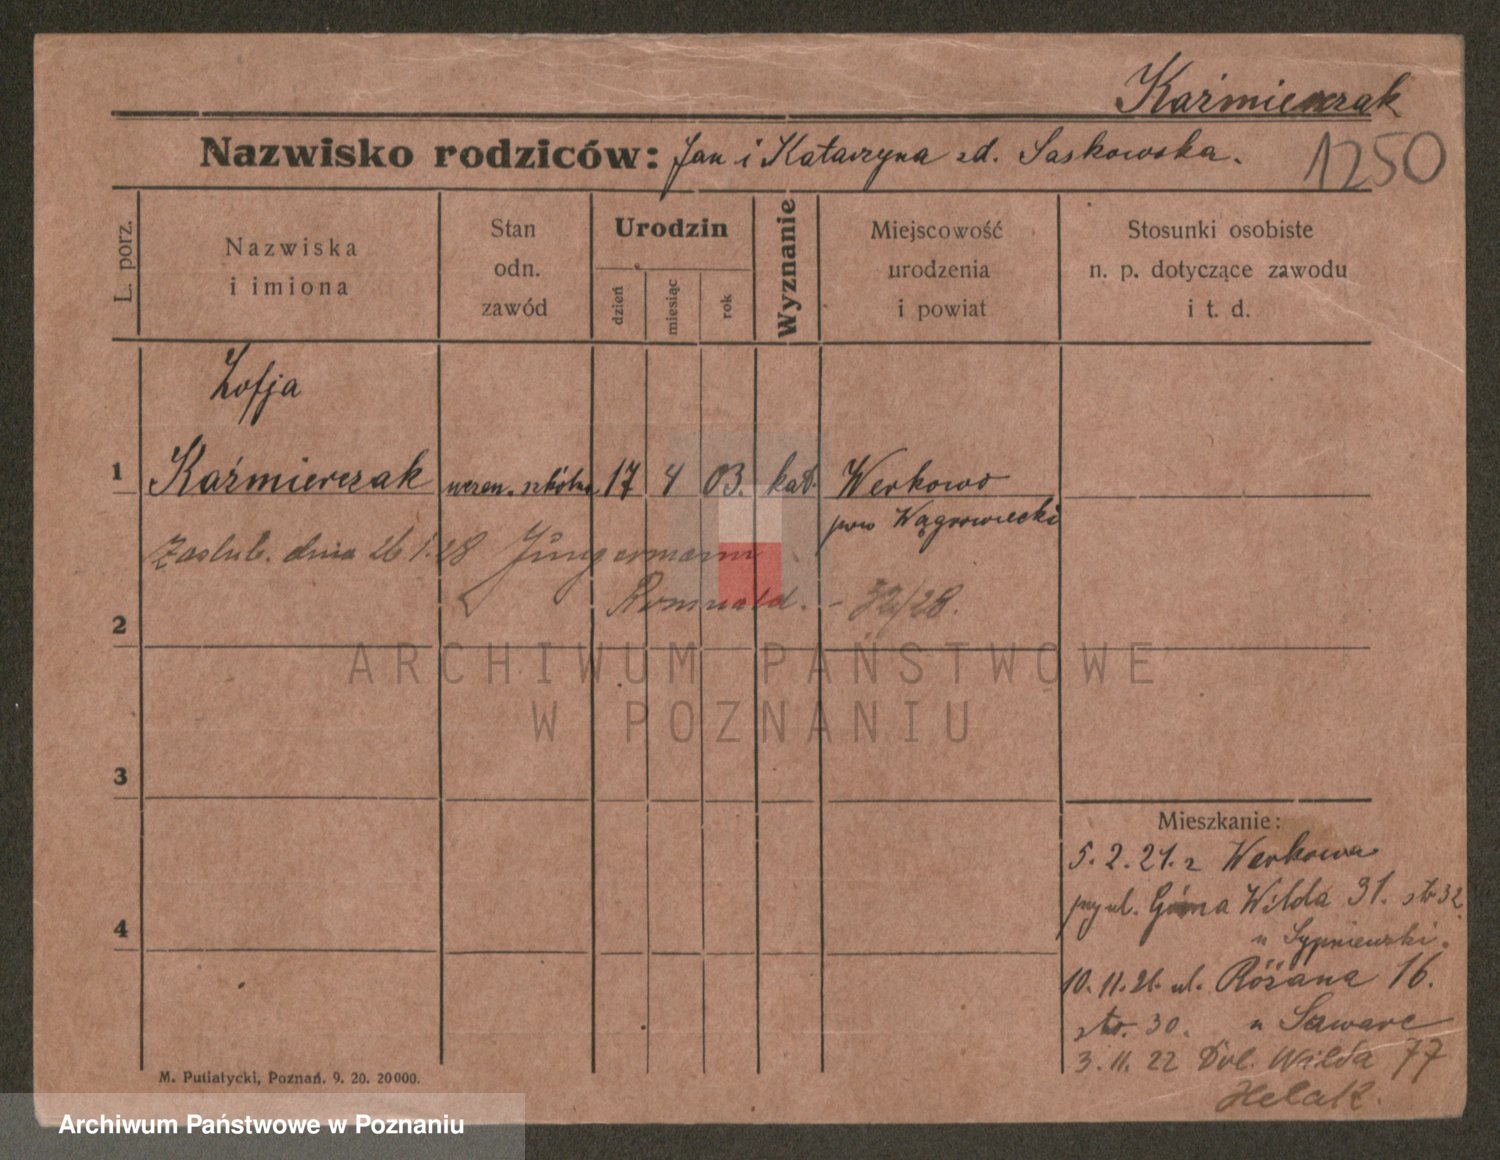 Kaźmierczak
Nazwisko rodziców: Jan i Katarzyna zd. Saskowska.
1250
L. porz.
Nazwiska
i imiona
Stan
odn.
zawód
Urodzin
dzień
miesiąc
rok
Wyznanie
Miejscowość
urodzenia
i powiat
Stosunki osobiste
n. p. dotyczące zawodu
i t. d.
Zofja
1 Kaźmierczak uczen. szkólna 17 4 03. kat. Werkowo
pow Wągrowiecki
Zaślub. dnia 26 1. 28 Jüngermann
Romuald. - 32/28.
2
ARCHIWUM PAŃSTWOWE
W POZNANIU
3
Mieszkanie:
5. 2. 21. z Werkowa
przy ul. Górna Wilda 31. str 32
u Sypniewski.
4
10. 11. 21. ul. Różana 16.
str. 30. u
3. 11. 22 Dol. Wilda 77
Helak.
M. Putiatycki, Poznań. 9. 20. 20000.
Archiwum Państwowe w Poznaniu